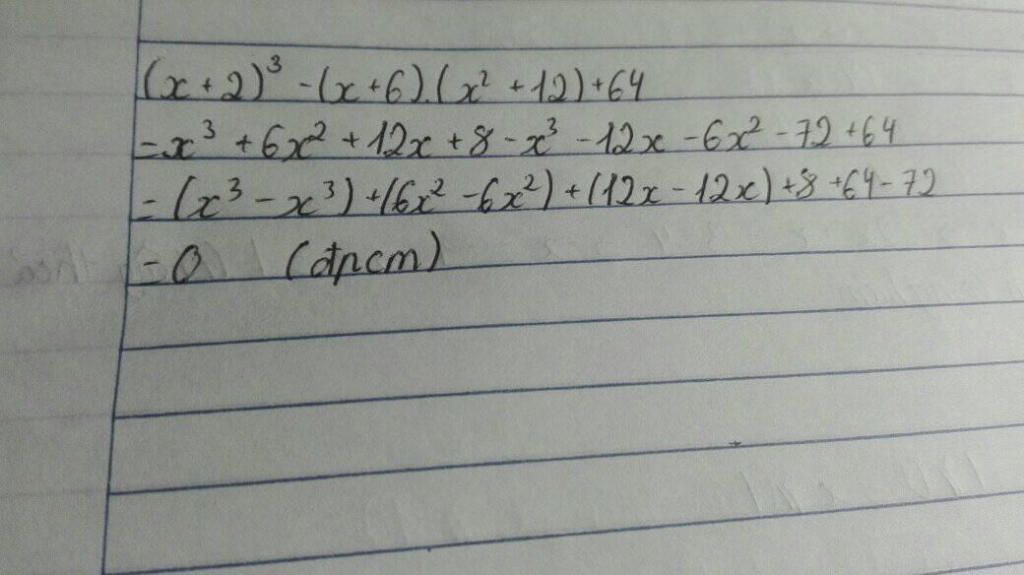 (x+2)³ -(x+6).(x² +12)+64
=x³ +6x² +12x +8 -x³ -12x -6x² -72 +64
= (x³ -x³) +(6x² -6x²) +(12x -12x) +8 +64 -72
= 0 (đpcm)